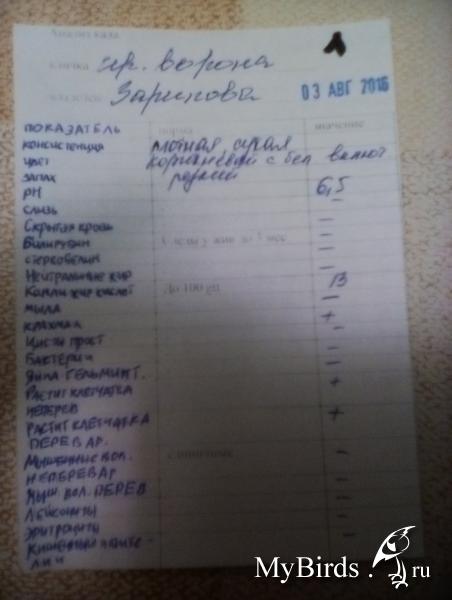 Анализ кала
кличка гр. ворона
владелец Зарипова 03 АВГ 2016
ПОКАЗАТЕЛЬ норма значение
КОНСИСТЕНЦИЯ плотная, сухая
ЦВЕТ коричневый с бел включ
ЗАПАХ резкий
PH 6,5
СЛИЗЬ –
Скрытая кровь –
Билирубин Следы у жив до 3 мес –
Стеркобелин –
Нейтральные жир
Капли жир кислот До 100 ед В
МЫЛА –
КРАХМАЛ +
Цисты прост –
БАКТЕРИИ –
ЯЙЦА ГЕЛЬМИНТ. –
РАСТИТ КЛЕТЧАТКА +
НЕПЕРЕВ
РАСТИТ КЛЕТЧАТКА +
ПЕРЕВАР.
МЫШЕЧНЫЕ ВОЛ. единичные –
НЕПЕРЕВАР
МЫШ. ВОЛ. ПЕРЕВ –
ЛЕЙКОЦИТЫ –
ЭРИТРОЦИТЫ –
КИШЕЧНЫЙ ЭПИТЕ- –
ЛИЙ
MyBirds.ru